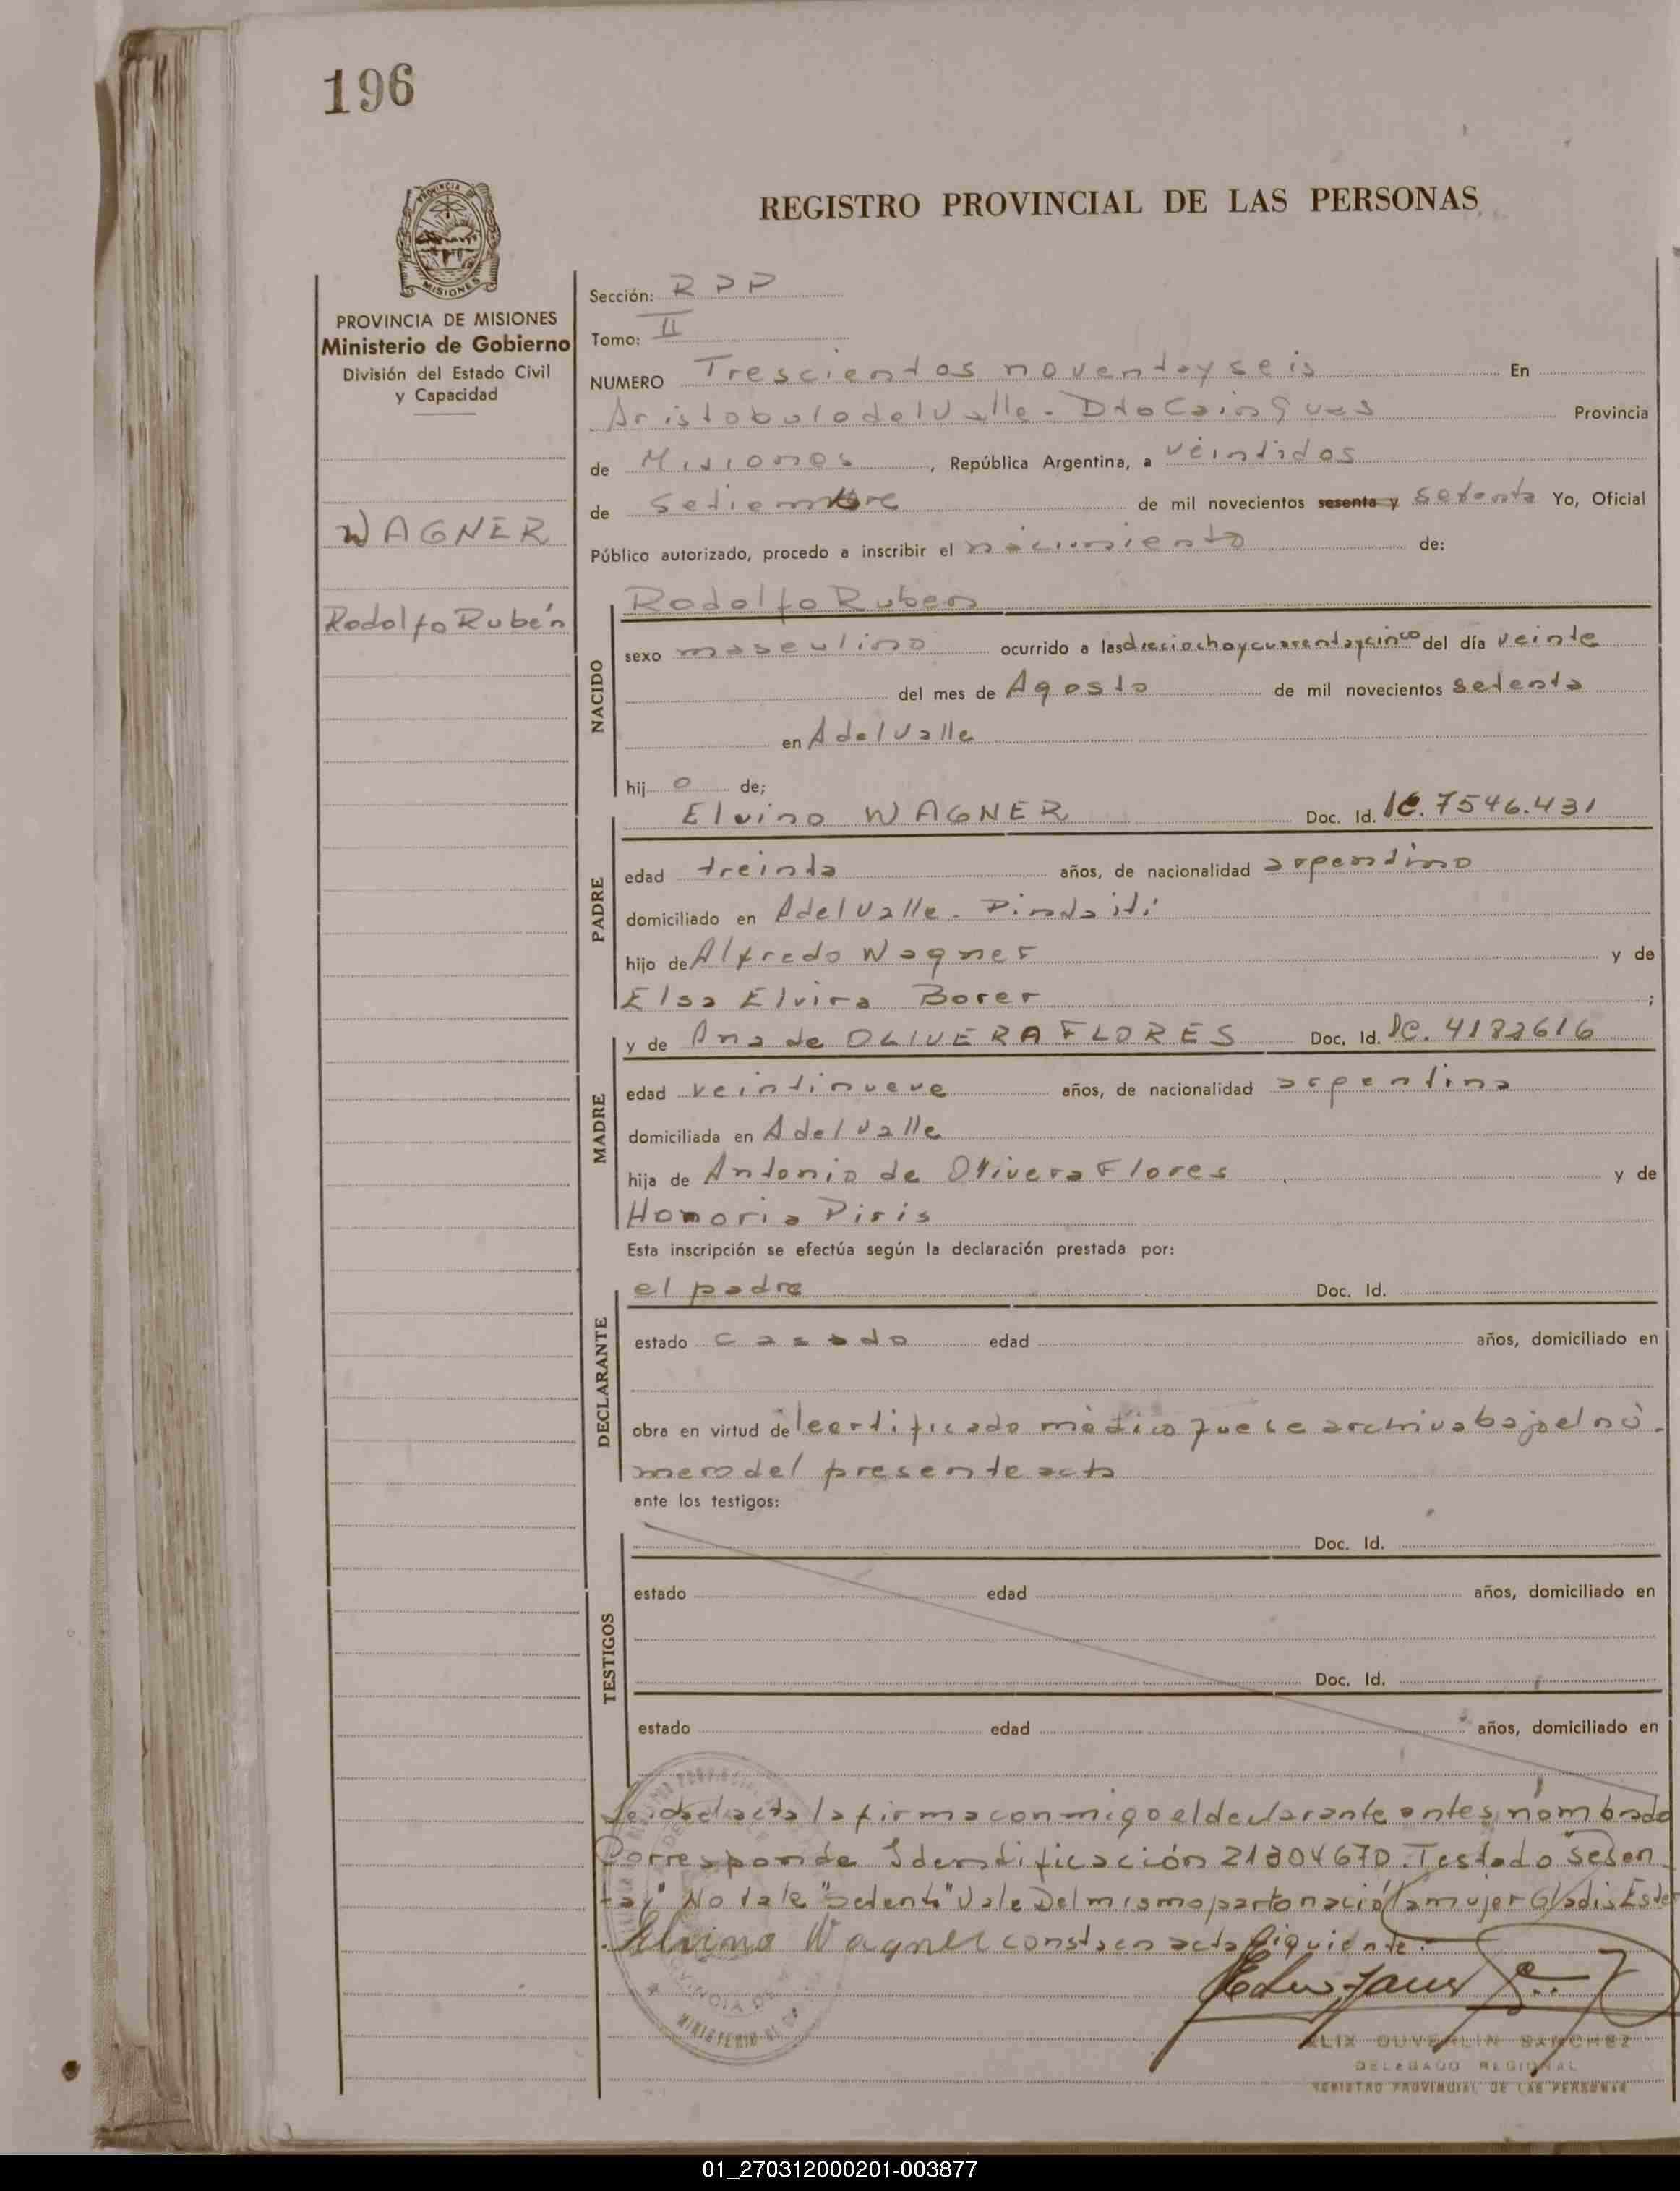 196
REGISTRO PROVINCIAL DE LAS PERSONAS
MISIONES
PROVINCIA DE MISIONES
Ministerio de Gobierno
División del Estado Civil
y Capacidad
WAGNER
Rodolfo Rubén
Sección: RPP
Tomo: II
NUMERO Trescientos noventayseis En
Aristobulo del Valle - Dto Cainguas Provincia
de Misiones, República Argentina, a veintidos
de Setiembre de mil novecientos sesenta y setenta Yo, Oficial
Público autorizado, procedo a inscribir el nacimiento de:
NACIDO
Rodolfo Ruben
sexo masculino ocurrido a las dieciochoycuarentaycinco del día veinte
del mes de Agosto de mil novecientos setenta
en A del Valle
hijo de;
PADRE
Elvino WAGNER Doc. Id. IC. 7546.431
edad treinta años, de nacionalidad argentino
domiciliado en A del Valle - Pindaití
hijo de Alfredo Wagner y de
Elsa Elvira Borer ;
MADRE
y de Ana de OLIVERA FLORES Doc. Id. IC. 4182616
edad veintinueve años, de nacionalidad argentina
domiciliada en A del Valle
hija de Antonio de Olivera Flores y de
Honoria Piris
Esta inscripción se efectúa según la declaración prestada por:
DECLARANTE
el padre Doc. Id.
estado casado edad años, domiciliado en
obra en virtud del certificado mèdico que se archiva bajo el nù-
mero del presente acta
ante los testigos:
TESTIGOS
Doc. Id.
estado edad años, domiciliado en
Doc. Id.
estado edad años, domiciliado en
Leida el acta la firma conmigo el declarante antes nombrado
Corresponde Identificación 21304670. Testado "sesen-
tay" No vale "setenta" Vale Del mismo parto nació la mujer Gladis Ester
Elvino Wagner consta en acta siguiente.-
FELIX DUVERLIN SANCHEZ
DELEGADO REGIONAL
REGISTRO PROVINCIAL DE LAS PERSONAS
01_270312000201-003877